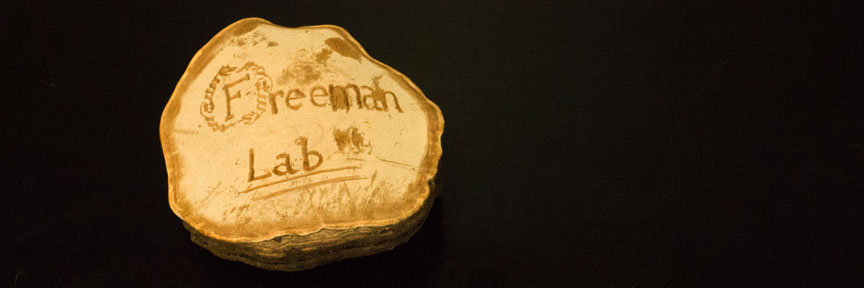 Freeman
Lab